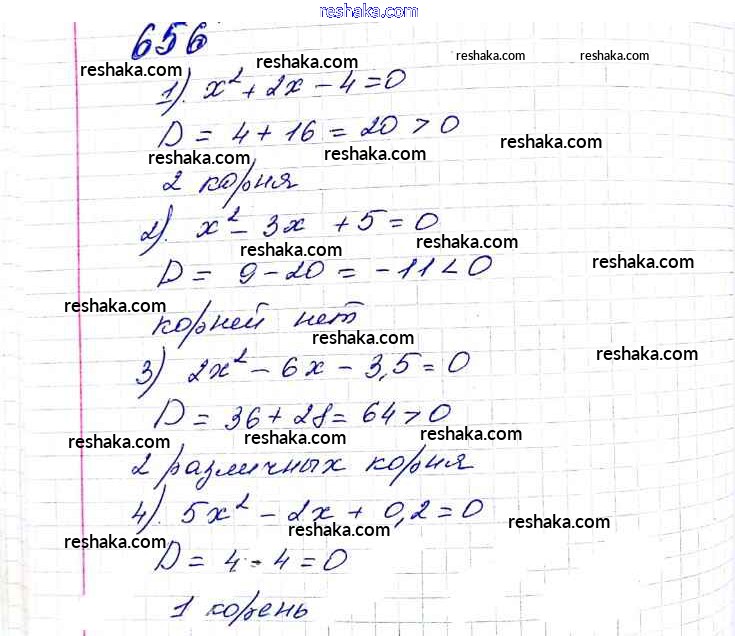 reshaka.com
656
reshaka.com reshaka.com reshaka.com reshaka.com
1). x² + 2x - 4 = 0
D = 4 + 16 = 20 > 0
reshaka.com reshaka.com reshaka.com
2 корня
2). x² - 3x + 5 = 0
reshaka.com reshaka.com reshaka.com
D = 9 - 20 = -11 < 0
reshaka.com
корней нет
reshaka.com reshaka.com
3) 2x² - 6x - 3,5 = 0
D = 36 + 28 = 64 > 0
reshaka.com reshaka.com reshaka.com
2 различных корня
4). 5x² - 2x + 0,2 = 0
reshaka.com reshaka.com reshaka.com
D = 4 - 4 = 0
1 корень